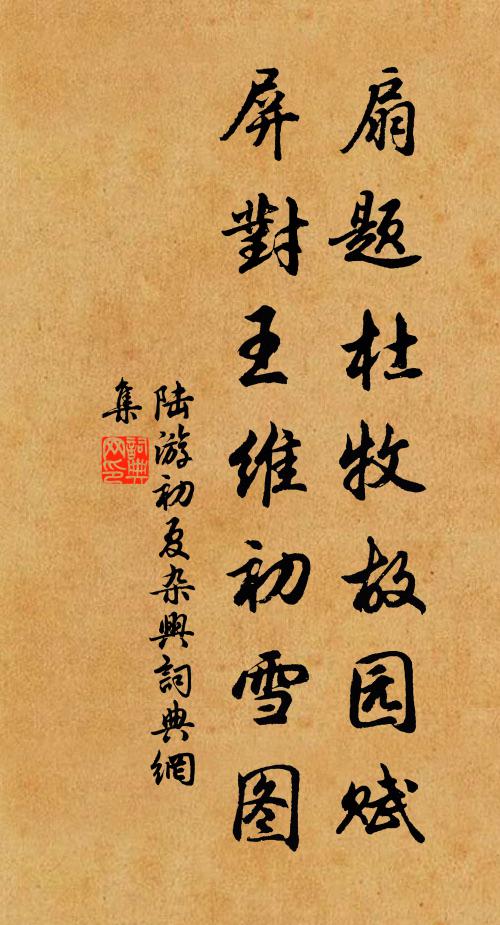 扇题杜牧故园赋
屏對王维初雪图
陆游初夏杂興詞典網
集
詞典网印